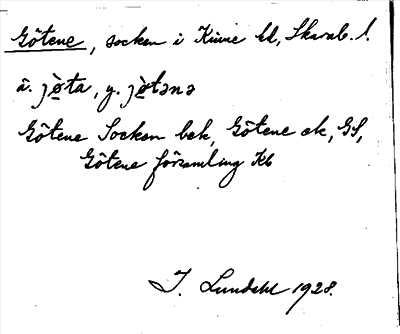 Götene, socken i Kinne hd, Skarab. l.
ä. jø̀ta, y. jø̀tənə
Götene Socken bek, Götene ek, GS,
Götene församling Kb
I. Lundahl 1928.